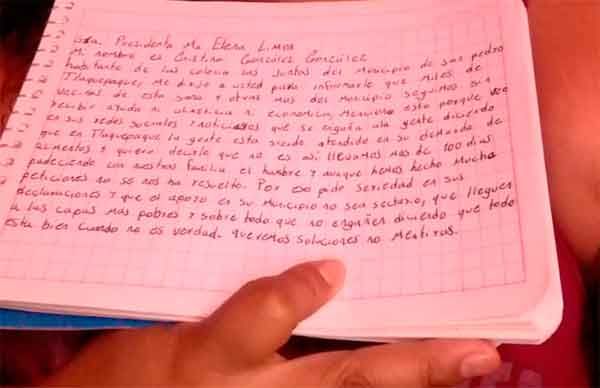 Lcda. Presidenta Ma Elena Limon
Mi nombre es Cristina González González
habitante de la colonia las Juntas del Municipio de San Pedro
Tlaquepaque, me dirijo a usted para informarle que miles de
vecinas de esta zona y otras mas del Municipio seguimos sin
recibir ayuda ni alimenticia ni economica, menciono esto porque veo
en sus redes sociales y noticieros que se engaña a la gente diciendo
que en Tlaquepaque la gente esta siendo atendida en su demanda de
alimentos y quiero decirle que no es asi llevamos mas de 100 dias
padeciendo con nuestras familia el hambre y aunque hemos hecho mucha
peticiones no se nos ha resuelto. Por eso pido seriedad en sus
declaraciones y que el apoyo en su Municipio no sea sectario, que lleguen
a las capas mas pobres y sobre todo que no engañen diciendo que todo
esta bien cuando no es verdad. queremos soluciones no mentiras.